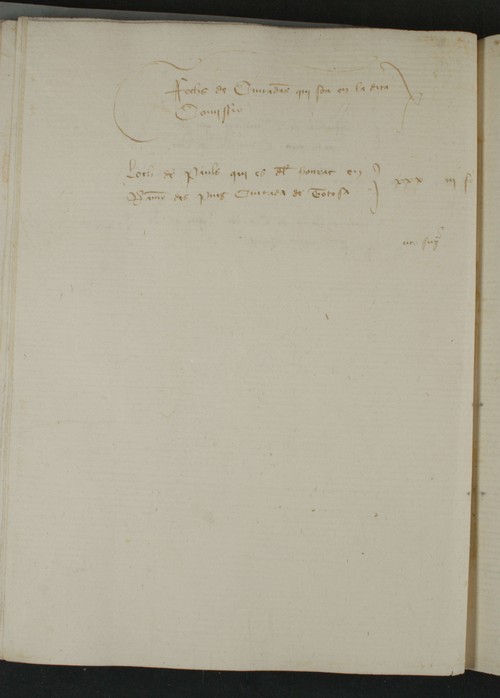 Fochs de Ciutadans qui son en la dita
Comissio
Loch de Pauls qui es del honrat en
Ramon des puig Ciutada de Tortosa
xxx iii f